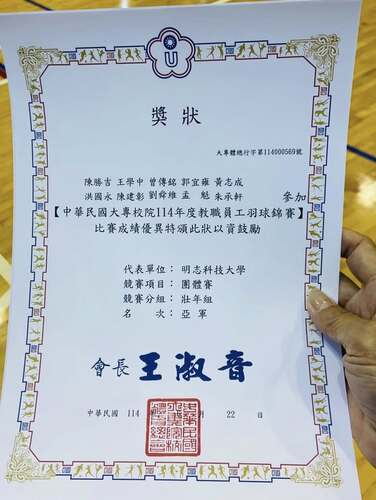 獎狀
大專體總行字第114000569號
陳勝吉 王學中 曾傳銘 郭宜雍 黃志成
洪國永 陳建彰 劉舜維 孟 魁 朱承軒 參加
【中華民國大專校院114年度教職員工羽球錦賽】
比賽成績優異特頒此狀以資鼓勵
代表單位：明志科技大學
競賽項目：團體賽
競賽分組：壯年組
名 次：亞軍
會長 王淑音
中華民國 114 月 22 日